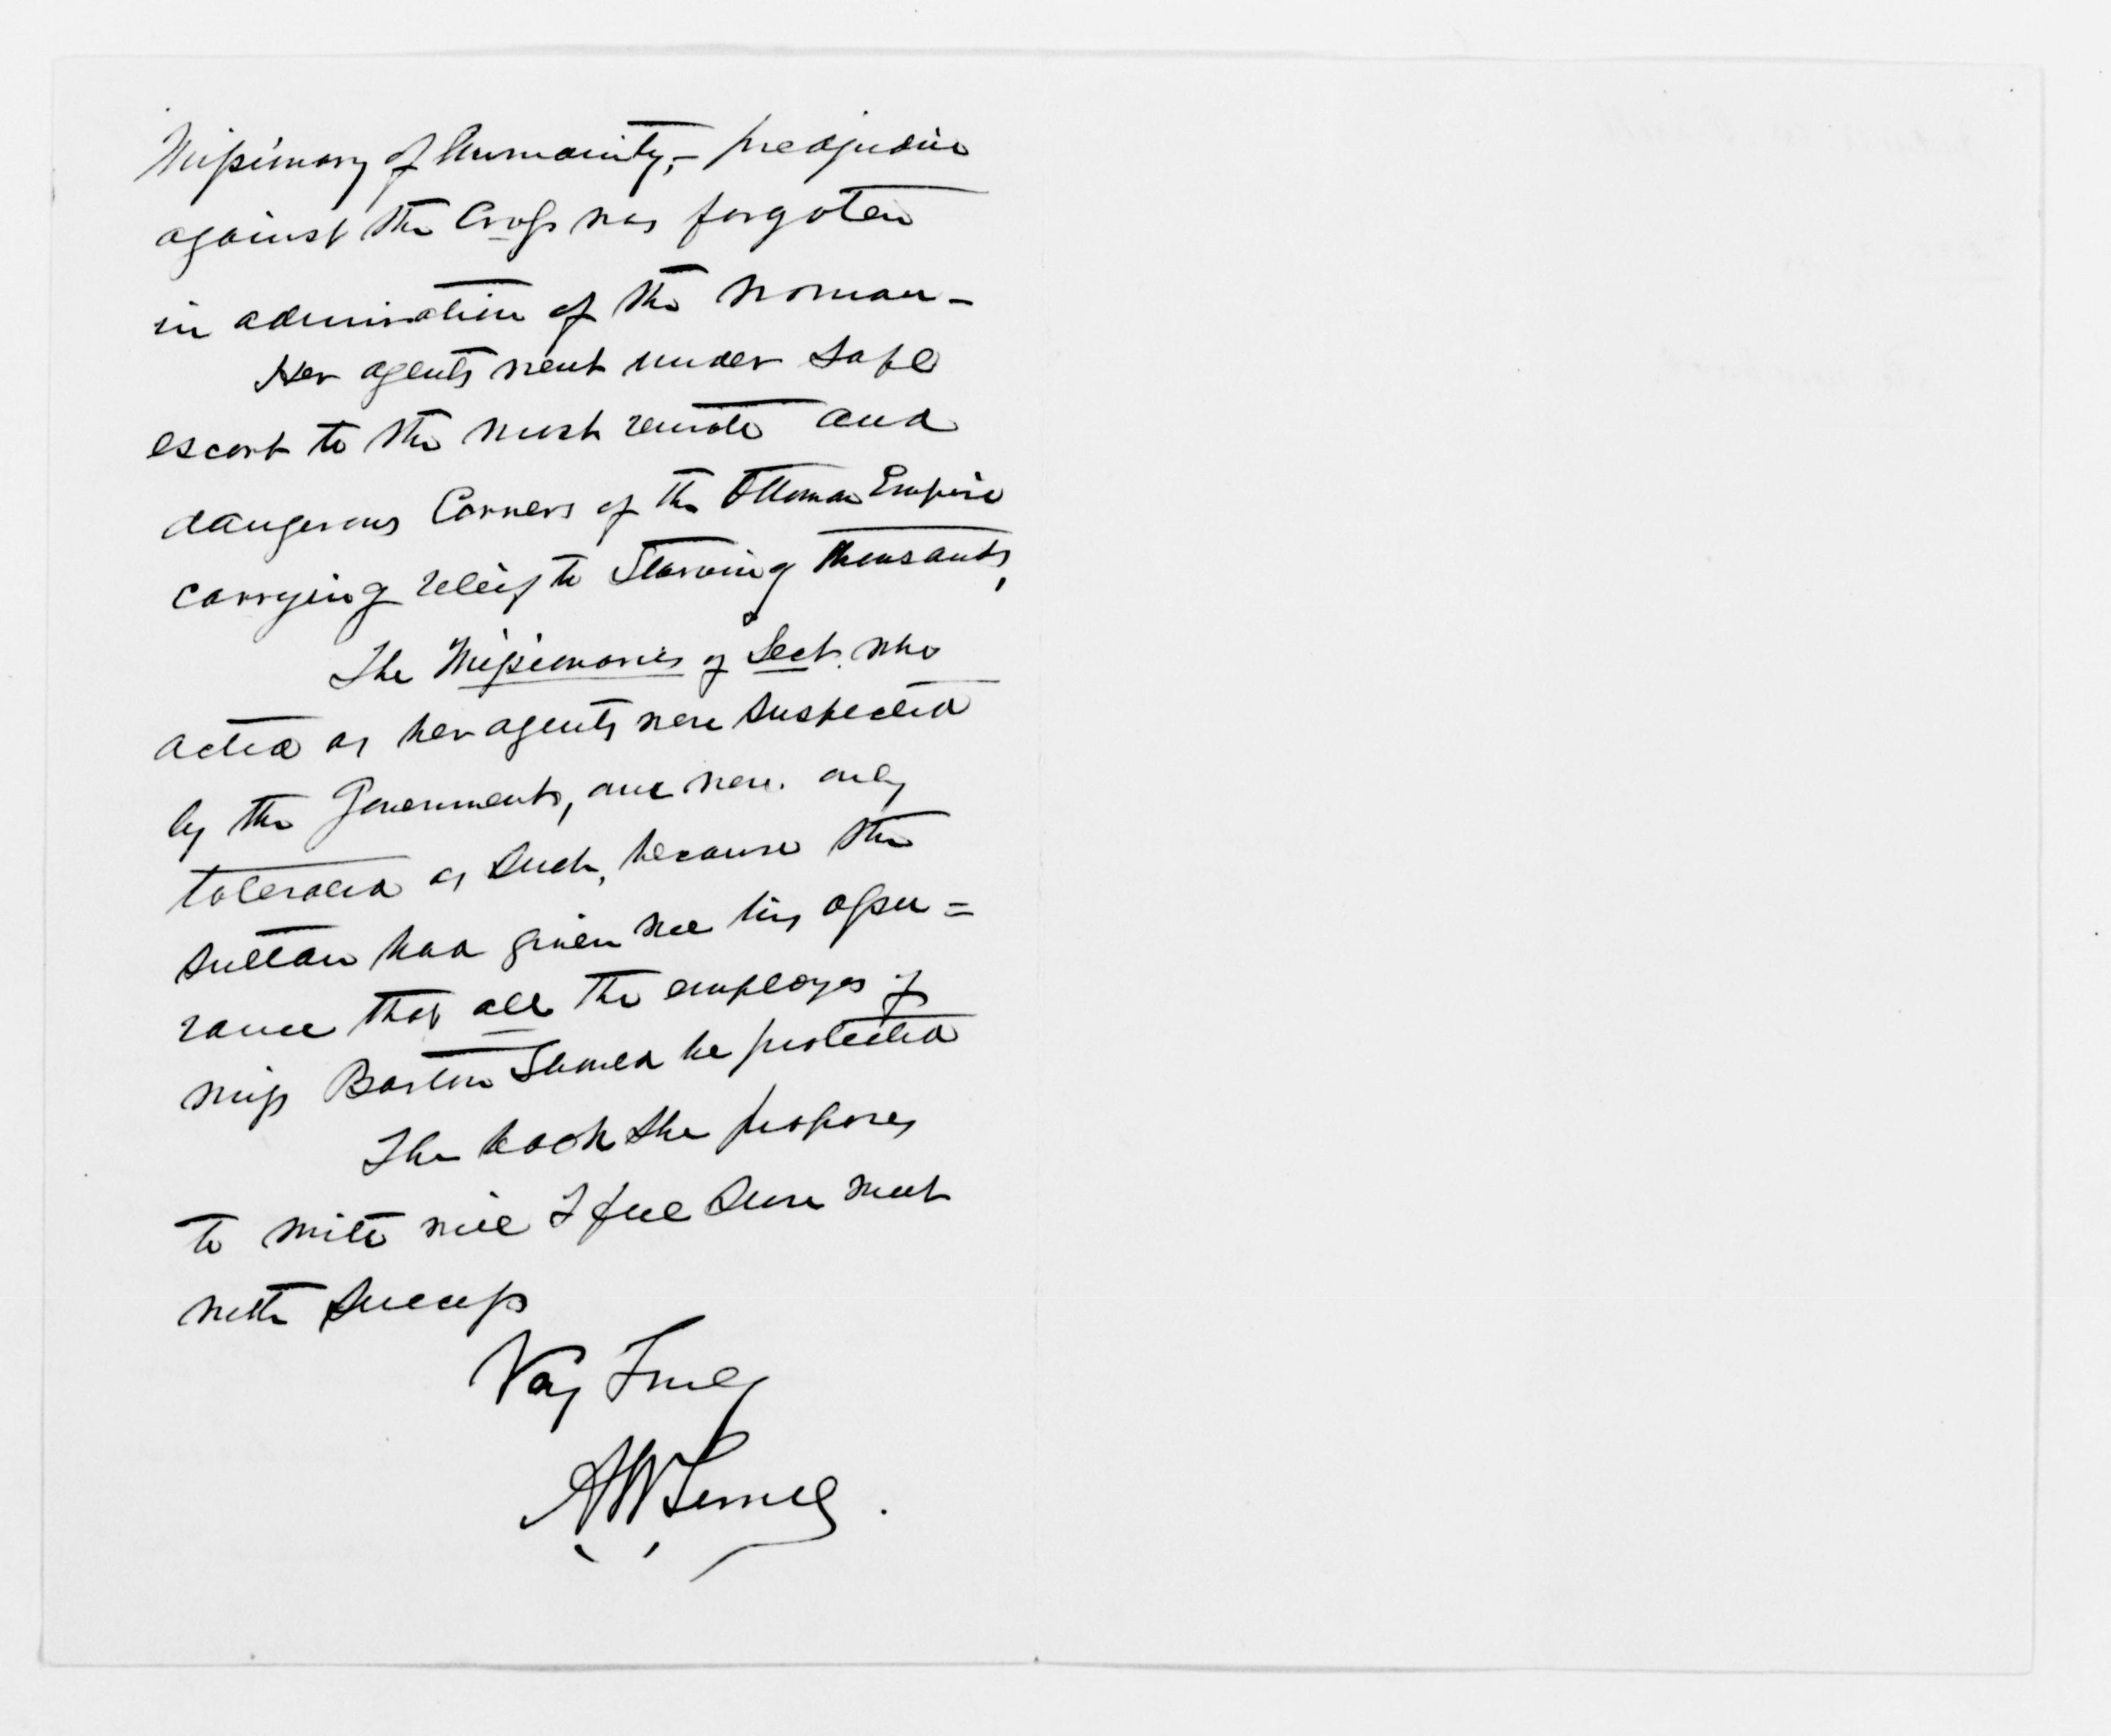 Missionary of humanity,- preadjudice
against the Cross was forgoten
in admiration of the woman -
Her agents went under safe
escort to the most remote and
dangerous Corners of the Ottoman Empire
carrying releif to Starving thousands,
The Missionaries of Sect. who
acted as her agents were suspected
by the Government, and were only
tolerated as such, because the
Sultan had given me his assu=
rance that all the employes of
Miss Barton Should be protected
The book she proposes
to write will I feel sure meet
with success
Very Truly
A W Terrell.